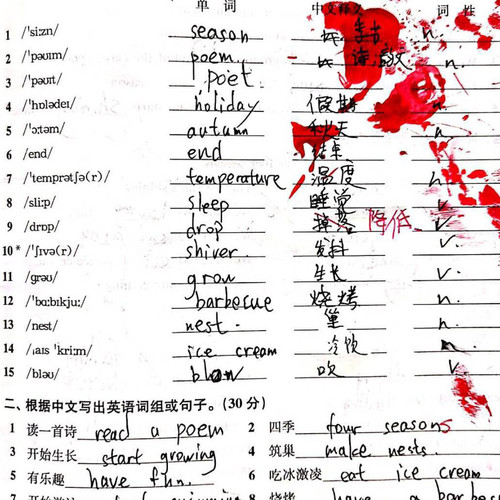 单词 中文释义 词性
1 /ˈsiːzn/ season n.
2 /ˈpəʊɪm/ poem n.
3 /ˈpəʊɪt/ poet
4 /ˈhɒlədeɪ/ holiday 假期 n.
5 /ˈɔːtəm/ autumn 秋天 n.
6 /end/ end 结束
7 /ˈtemprətʃə(r)/ temperature 温度 n
8 /sliːp/ sleep 睡觉 v
9 /drɒp/ drop 掉落 降低 v
10* /ˈʃɪvə(r)/ shiver 发抖 v.
11 /ɡrəʊ/ grow 生长 v.
12 /ˈbɑːbɪkjuː/ barbecue 烧烤 n.
13 /nest/ nest. 巢 n.
14 /ˌaɪs ˈkriːm/ ice cream 冷饮 n.
15 /bləʊ/ blow 吹 v
二、根据中文写出英语词组或句子。(30 分)
1 读一首诗 read a poem 2 四季 four seasons
3 开始生长 start growing 4 筑巢 make nests.
5 有乐趣 have fun. 6 吃冰激凌 eat ice cream
7 8 烧烤 have a barbecue